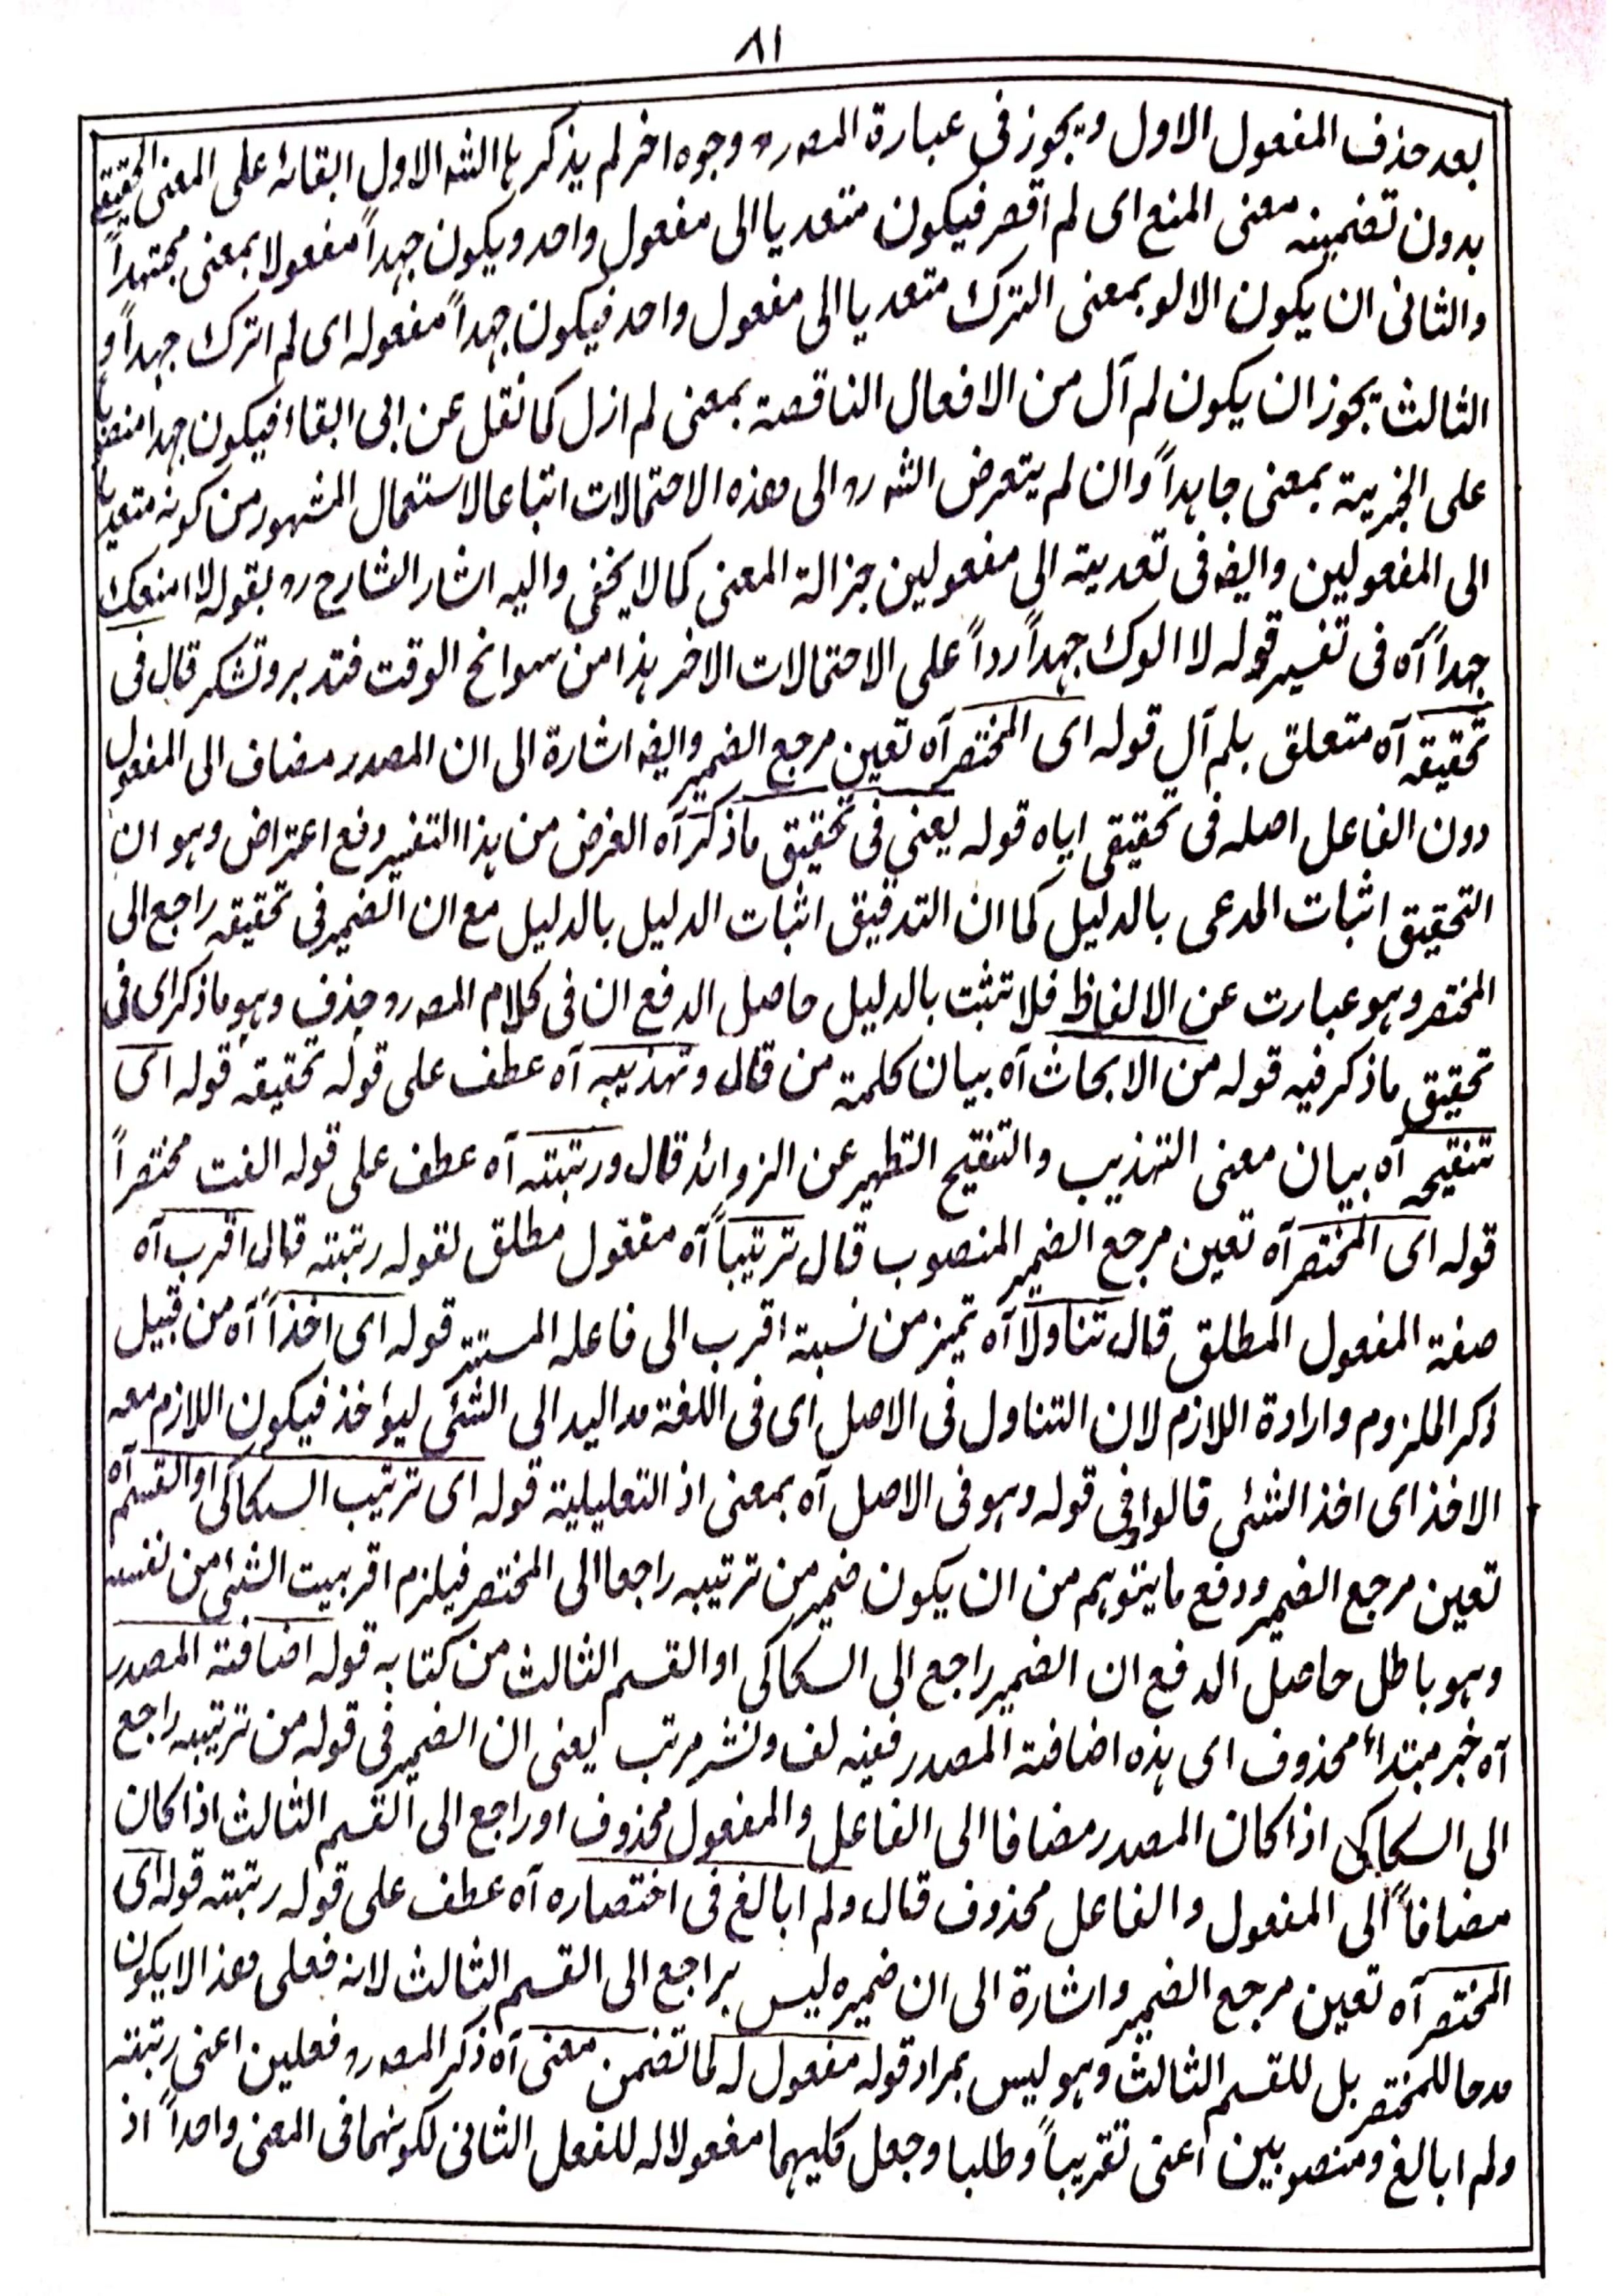 ٨١
بعد حذف المفعول الاول ويجوز فى عبارة المصہ رہ وجوه اخر لم يذكرها الشہ الاول ابقائہ على المعنى الحقيقى
بدون تضمينہ معنى المنع اى لم اقصر فيكون متعديا الى مفعول واحد ويكون جہداً مفعولا بمعنى مجتہداً
والثانى ان يكون الالو بمعنى الترك متعديا الى مفعول واحد فيكون جہداً مفعولہ اى لم اترك جہداً و
الثالث يجوز ان يكون لم آل من الافعال الناقصة بمعنى لم ازل كما نقل عن ابى البقاء فيكون جہدا منصوبا
على الخبرية بمعنى جاہداً وان لم يتعرض الشہ رہ الى ھذه الاحتمالات اتباعا لاستعمال المشہور من كونہ متعديا
الى المفعولين وايضہ فى تعدية الى مفعولين جزالة المعنى كما لا يخفى واليہ اشار الشارح رہ بقولہ لا امنعك
جہداً آہ فى تفسير قولہ لا الوك جہداً رداً على الاحتمالات الاخر ہذا من سوانح الوقت فتدبر وتشكر قال فى
تحقيقہ آہ متعلق بلم آل قولہ اى المختصر آہ تعين مرجع الضمير وايضہ اشارة الى ان المصدر مضاف الى المفعول
دون الفاعل اصلہ فى تحقيقى اياہ قولہ يعنى فى تحقيق ماذكر آہ الغرض من ہذا التفسير دفع اعتراض وہو ان
التحقيق اثبات المدعى بالدليل كما ان التدقيق اثبات الدليل بالدليل مع ان الضمير فى تحقيقہ راجع الى
المختصر وہو عبارت عن الالفاظ فلا تثبت بالدليل حاصل الدفع ان فى كلام المصہ رہ حذف وہو ماذكر اى فى
تحقيق ماذكر فيہ قولہ من الابحاث آہ بيان كلمة من قال وتہذيبہ آہ عطف على قولہ تحقيقہ قولہ اى
تنقيحہ آہ بيان معنى التہذيب والتنقيح التطہير عن الزوائد قال ورتبتہ آہ عطف على قولہ الفت مختصراً
قولہ اى المختصر آہ تعين مرجع الضمير المنصوب قال ترتيباً آہ مفعول مطلق لقولہ رتبتہ قال اقرب آہ
صفة المفعول المطلق قال تناولاً آہ تميز من نسبة اقرب الى فاعلہ المستتر قولہ اى اخذاً آہ من قبيل
ذكر الملزوم وارادة اللازم لان التناول فى الاصل اى فى اللغة مد اليد الى الشئى ليؤخذ فيكون اللازم معہ
الاخذ اى اخذ الشئى قالوا فى قولہ وہو فى الاصل آہ بمعنى اذ التعليلية قولہ اى ترتيب السكاكى او القسم آہ
تعين مرجع الضمير ودفع ما يتوہم من ان يكون ضمير من ترتيبہ راجعا الى المختصر فيلزم اقربيت الشئى من نفسہ
وہو باطل حاصل الدفع ان الضمير راجع الى السكاكى او القسم الثالث من كتابہ قولہ اضافة المصدر
آہ خبر مبتداء محذوف اى ہذه اضافة المصدر ففيہ لف ونشر مرتب يعنى ان الضمير فى قولہ من ترتيبہ راجع
الى السكاكى اذا كان المصدر مضافا الى الفاعل والمفعول محذوف او راجع الى القسم الثالث اذا كان
مضافاً الى المفعول والفاعل محذوف قال ولم ابالغ فى اختصارہ آہ عطف على قولہ رتبتہ قولہ اى
المختصر آہ تعين مرجع الضمير واشارة الى ان ضميرہ ليس براجع الى القسم الثالث لانہ فعلى ھذا لا يكون
مدحا للمختصر بل للقسم الثالث وہو ليس بمراد قولہ مفعول لہ لما تضمن معنى آہ ذكر المصہ رہ فعلين اعنى رتبتہ
ولم ابالغ ومنصوبين اعنى تقريباً وطلبا وجعل كليہما مفعولا لہ للفعل الثانى لكونہما فى المعنى واحداً اذ